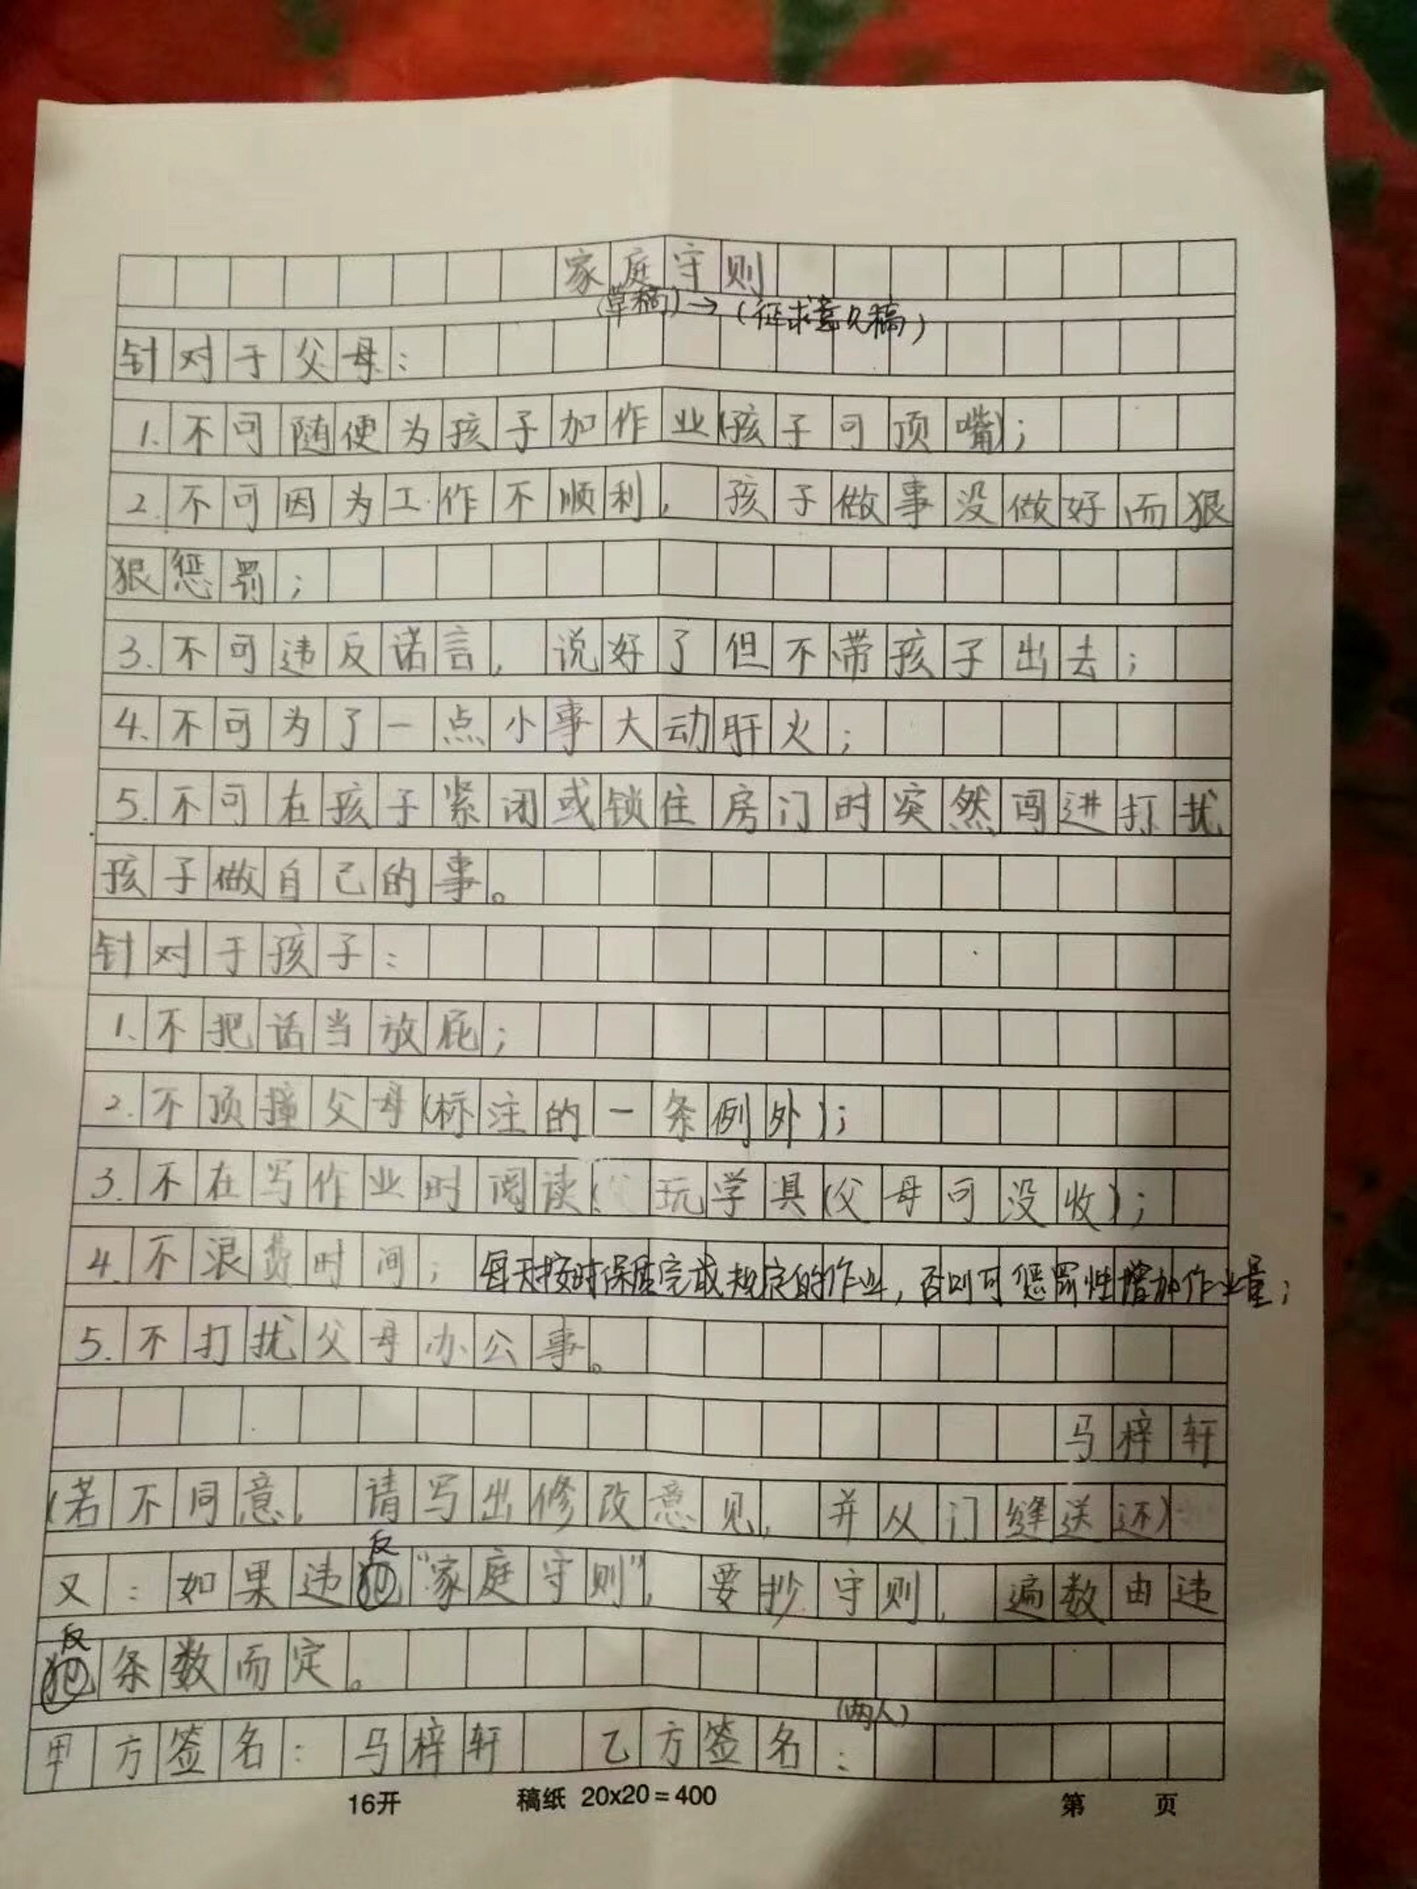 家庭守则
(草稿)→(征求意见稿)
针对于父母：
1.不可随便为孩子加作业(孩子可顶嘴)；
2.不可因为工作不顺利，孩子做事没做好而狠
狠惩罚；
3.不可违反诺言，说好了但不带孩子出去；
4.不可为了一点小事大动肝火；
5.不可在孩子紧闭或锁住房门时突然闯进打扰
孩子做自己的事。
针对于孩子：
1.不把话当放屁；
2.不顶撞父母(标注的一条例外)；
3.不在写作业时阅读(玩学具(父母可没收)；
4.不浪费时间；每天按时保质完成规定的作业，否则可惩罚性增加作业量；
5.不打扰父母办公事。
马梓轩
(若不同意，请写出修改意见，并从门缝送还)
反
又：如果违犯“家庭守则”，要抄守则，遍数由违
反
犯条数而定。
(两人)
甲方签名：马梓轩 乙方签名：
16开 稿纸 20x20=400 第 页